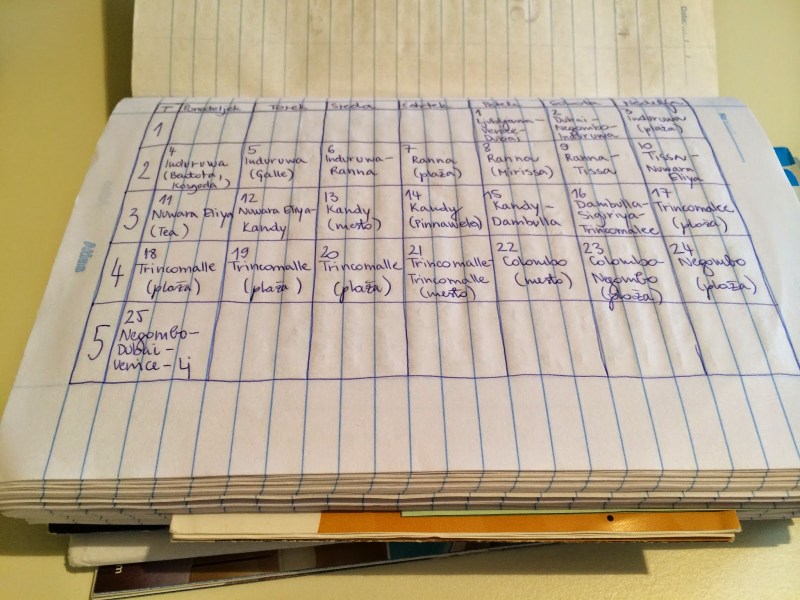 T Ponedeljek Torek Sreda Četrtek Petek Sobota Nedelja
1
1
Ljubljana-
Venice-
Dubai
2
Dubai-
Negombo-
Induruwa
3
Induruwa
(plaža)
2
4
Induruwa
(Bentota,
Kosgoda)
5
Induruwa
(Galle)
6
Induruwa-
Ranna
7
Ranna
(plaža)
8
Ranna
(Mirissa)
9
Ranna-
Tissa
10
Tissa-
Nuwara
Eliya
3
11
Nuwara Eliya
(Tea)
12
Nuwara Eliya-
Kandy
13
Kandy
(mesto)
14
Kandy
(Pinnawela)
15
Kandy-
Dambulla
16
Dambulla-
Sigiraya-
Trincomalee
17
Trincomalee
(plaža)
4
18
Trincomalle
(plaža)
19
Trincomalle
(plaža)
20
Trincomalle
(plaža)
21
Trincomalle-
Trincomalle
(mesto)
22
Colombo
(mesto)
23
Colombo-
Negombo
(plaža)
24
Negombo
(plaža)
5
25
Negombo-
Dubai-
Venice-Lj
Atlas